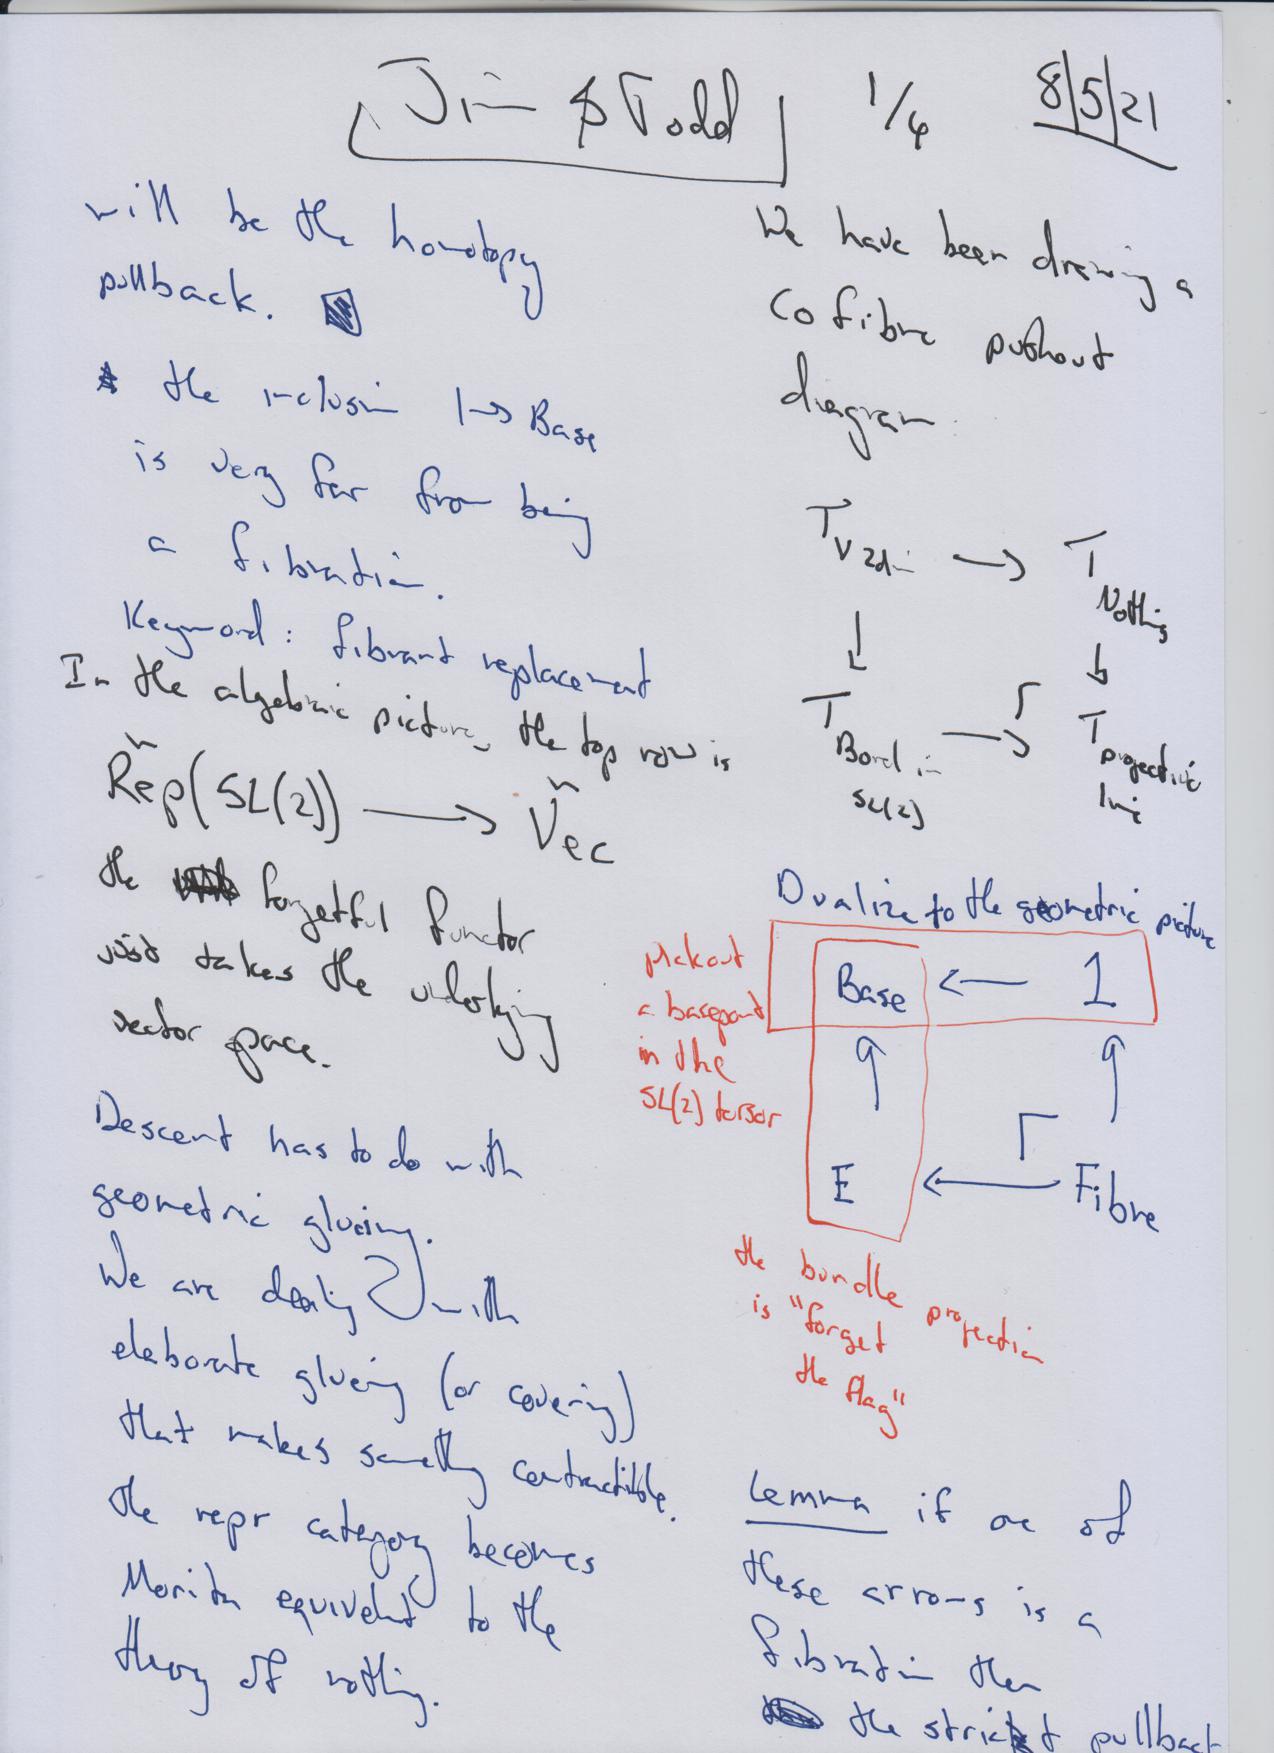 Jim & Todd
1/4
8/5/21
will be the homotopy
pullback.
* the inclusion 1 → Base
is very far from being
a fibration.
Keyword: fibrant replacement
In the algebraic picture, the top row is
Rep(SL(2)) → Vec
the forgetful functor
just takes the underlying
vector space.
Descent has to do with
geometric glueing.
We are dealing with
elaborate glueing (or covering)
that makes something contractible.
the repr category becomes
Morita equivalent to the
theory of nothing.
We have been drawing a
cofibre pushout
diagram
T V 2dim → T Nothing
↓ ↓
T Borel in SL(2) → T projective line
Dualize to the geometric picture
Base ← 1
↑ ↑
E ← Fibre
pick out
a basepoint
in the
SL(2) torsor
the bundle projection
is "forget
the flag"
Lemma if one of
these arrows is a
fibration then
the strict pullback